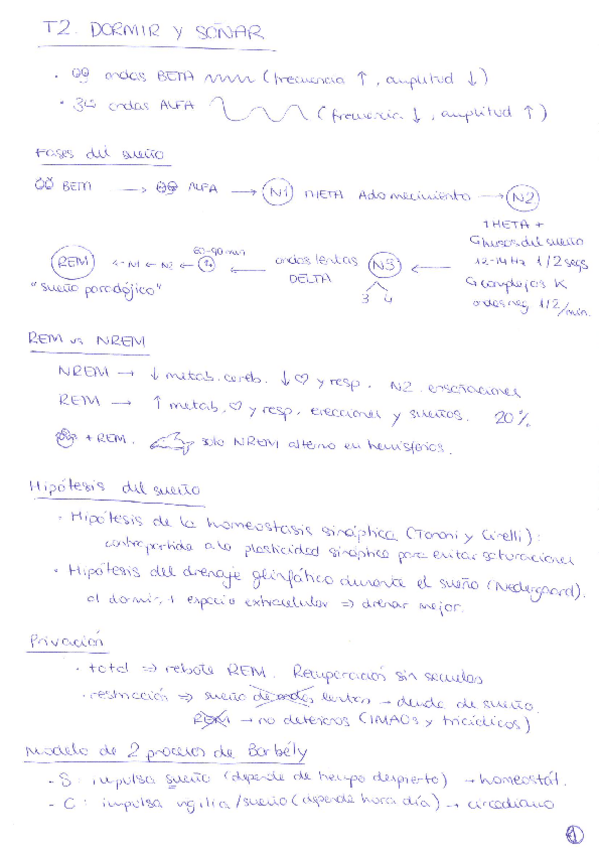 T2. DORMIR Y SOÑAR
· ondas BETA (frecuencia ↑, amplitud ↓)
· ondas ALFA (frecuencia ↓, amplitud ↑)
Fases del sueño
BETA → ALFA → N1 THETA Adormecimiento → N2
THETA +
Ghusos del sueño
12-14Hz 1/2 segs
Gcomplejos K
ondas neg 1/2/min.
REM ← N1 ← N2 ← 60-90 min ← ondas lentas DELTA N3 ←
3 4
"sueño paradójico"
REM vs NREM
NREM → ↓ metab. cereb. ↓♡ y resp. N2. ensoñaciones
REM → ↑ metab, ♡ y resp, erecciones y sueños. 20%
+ REM. solo NREM alterno en hemisferios.
Hipótesis del sueño
· Hipótesis de la homeostasis sináptica (Tononi y Cirelli):
contrapartida a la plasticidad sináptica para evitar saturaciones
· Hipótesis del drenaje glinfático durante el sueño (Nedergaard).
al dormir, ↑ espacio extracelular ⇒ drenar mejor.
Privación
· total ⇒ rebote REM. Recuperación sin secuelas
· restricción ⇒ sueño de ondas lentas → deuda de sueño.
REM → no deterioros (IMAOs y tricíclicos)
Modelo de 2 procesos de Borbély
- S: impulsa sueño (depende de tiempo despierto) → homeostát.
- C: impulsa vigilia/sueño (depende hora día) → circadiano
1